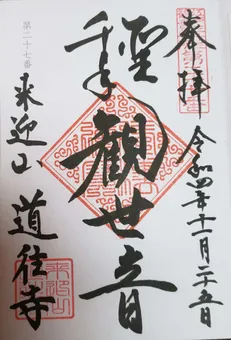 奉拝
令和四年十一月二十五日
聖
千手
観世音
第二十七番
来迎山
道往寺